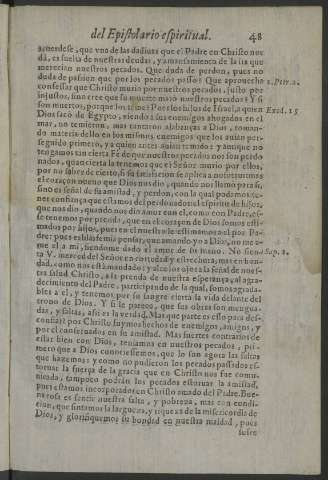 del Epistolario espiritual. 48
acuerdese, que vna de las dadiuas que el Padre en Christo nos
dá, es suelta de nuestras deudas, y amansamiento de la ira que
merecien nuestros pecados. Que duda de perdon, pues no
duda de passion que por los perdos passó? Que aprouecho 1. Petr. 2.
confessar que Christo murio por nuestros pecados, justo por
injustos, sino cree que su muerte mató nuestros pecados? Y si
son muertos, porque los teme? Por los hijos de Israel, a quien Exod. 15
Dios sacó de Egypto, siendo sus enemigos ahogados en el
mar, no temieron, mas cantaron alabanças a Dios, toman-
do materia dello en los mismos enemigos que los auian per-
seguido primero, ya quien antes auian temido: y aunque no
tengamos tan cierta Fé de que nuestros pecados nos son perdo
nados, quan cierta la tenemos que el Señor murio por ellos,
por no saber de cierto, si su satisfacion se aplica a nosotros: mas
el coraçon nueuo que Dios nos dio, quando nos llamó para si,
sino es señal de su amistad, y perdon, con la qual podemos te-
ner confiança que estamos del perdonados: el espiritu de hijos,
que nos dio, quando nos dio amor con el, como con Padre, es-
se tenemos por prenda, que en el coraçon de Dios somos esti-
mados por hijos, pues en el nuestro le estimamos a el por Pa-
dre: pues está lexos mi pensar, que amando yo a Dios, no me a-
me al a mi, siendome dado el amor de su mano. No sienta Sap. 2.
V. merced del Señor en cortedad y estrechura, mas en bon-
dad, como nos está mandado: y alce los ojos a la señal de nues-
tra salud Christo, a la prenda de nuestra esperança, al agra-
decimiento del Padre, participando de la qual, somos agrada-
bles a el, y tenemos por su sangre cierta la vida delante del
trono de Dios. Y si le parece, que sus obras son mengua-
das, y faltas, assi es la verdad. Mas que parte es esto para des-
confiar: por Christo fuymos hechos de enemigos, amigos, y
por el conseruados en su amistad. Mas fuertes contrarios de
estar bien con Dios, teniamos en nuestros pecados, pri-
mero que a Dios conociessemos, que lo son agora las faltas
que hazemos: y como no pudieron los pecados passados es-
toruar la fuerça de la gracia que en Christo nos fue comu-
nicada, tampoco podrán los pecados estoruar la amistad,
pues estamos incorporados en Christo amado del Padre. Bue-
na cosa es sentir nuestra falta, y pobreza, mas con condi-
cion, que sintamos la largueza, y riqueza de la misericordia de
Dios, y glorifiquemos su bondad en nuestra maldad, pues
sufre